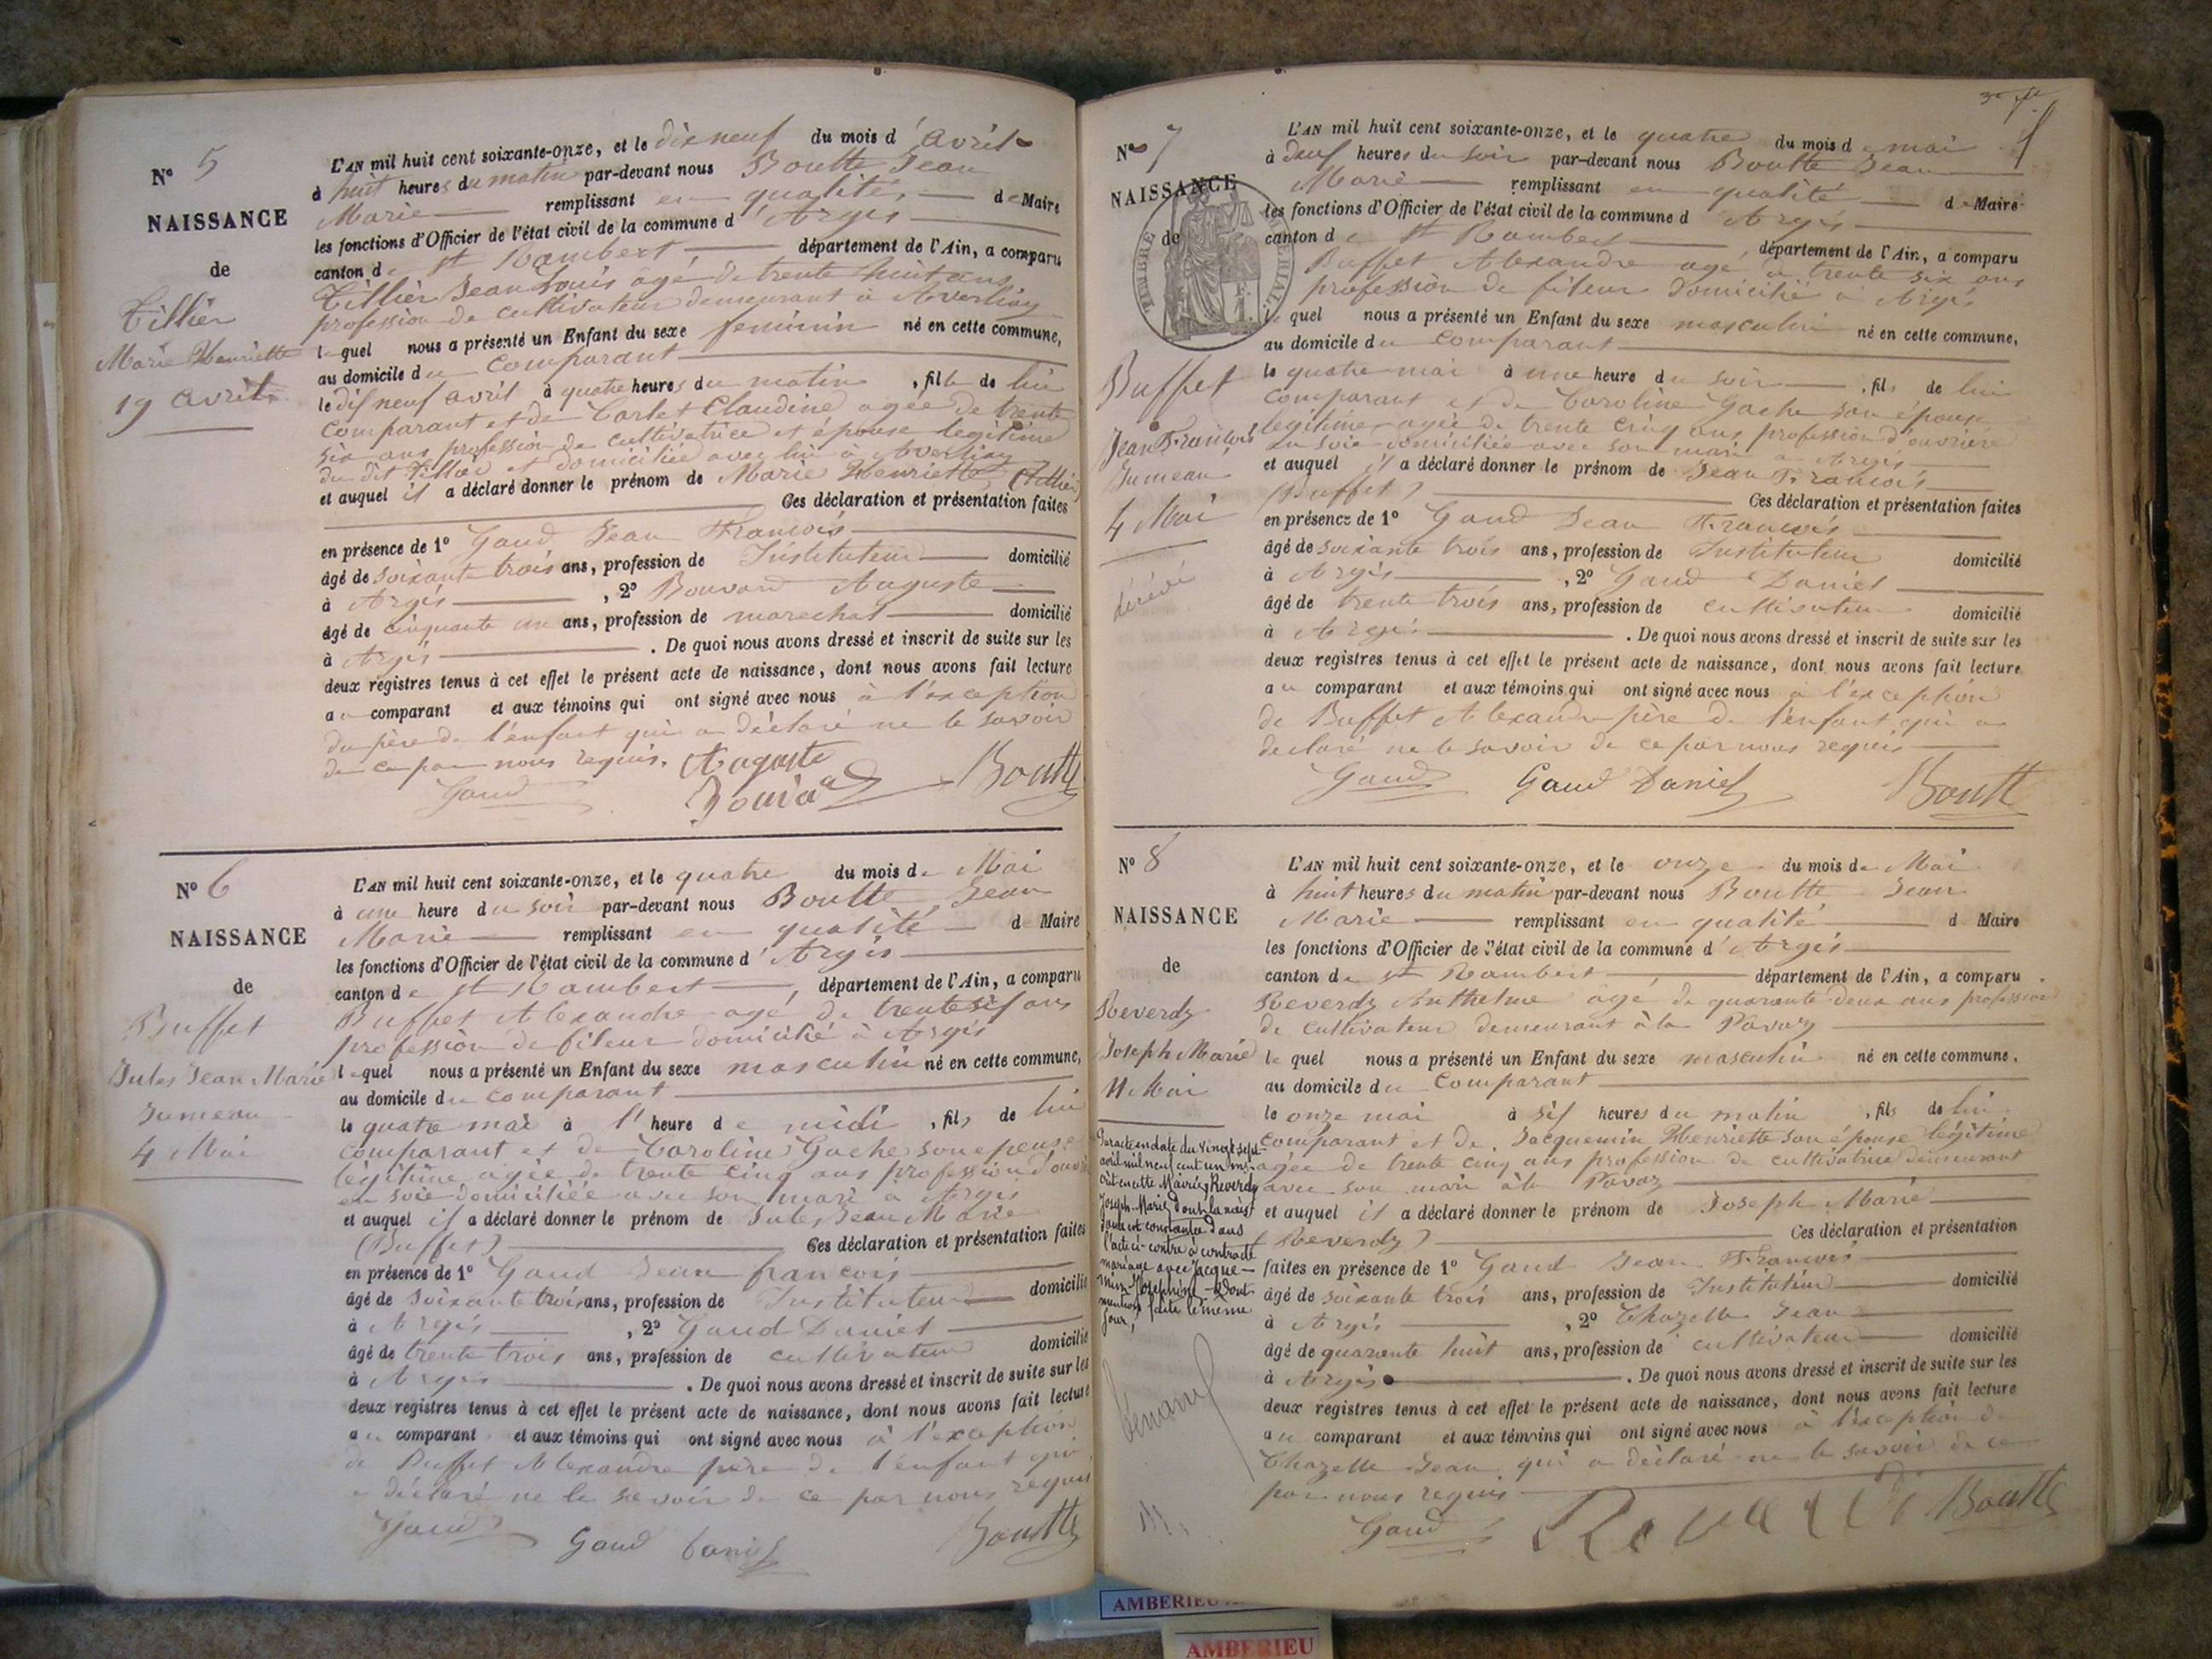 N° 5
NAISSANCE
de
Tillier
Marie Henriette
19 avril
L'AN mil huit cent soixante-onze, et le dix neuf du mois d'avril
à huit heures du matin par-devant nous Boutte Jean
Marie remplissant en qualité de Maire
les fonctions d'Officier de l'état civil de la commune d'Argis
canton de St Rambert, département de l'Ain, a comparu
Tillier Jean Louis agé de trente huit ans
profession de cultivateur demeurant à Averliaz
lequel nous a présenté un Enfant du sexe feminin né en cette commune,
au domicile du comparant
le dix neuf avril à quatre heures du matin, fille de lui
comparant et de Carlet Claudine agée de trente
six ans profession de cultivatrice et épouse legitime
du dit Tillier et domiciliée avec lui à Averliaz
et auquel il a déclaré donner le prénom de Marie Henriette (Tillier)
Ces déclaration et présentation faites
en présence de 1° Gaud Jean François
âgé de soixante trois ans, profession de Instituteur domicilié
à Argis, 2° Bouvard Auguste
âgé de cinquante un ans, profession de marechal domicilié
à Argis. De quoi nous avons dressé et inscrit de suite sur les
deux registres tenus à cet effet le présent acte de naissance, dont nous avons fait lecture
au comparant et aux témoins qui ont signé avec nous à l'exception
du père de l'enfant qui a déclaré ne le savoir
de ce par nous requis. Auguste
Gaud Bouvard Boutte
N° 6
NAISSANCE
de
Buffet
Jules Jean Marie
Jumeau
4 Mai
L'AN mil huit cent soixante-onze, et le quatre du mois de Mai
à une heure du soir par-devant nous Boutte Jean
Marie remplissant en qualité de Maire
les fonctions d'Officier de l'état civil de la commune d'Argis
canton de St Rambert, département de l'Ain, a comparu
Buffet Alexandre agé de trente six ans
profession de fileur domicilié à Argis
lequel nous a présenté un Enfant du sexe masculin né en cette commune,
au domicile du comparant
le quatre mai à l'heure de midi, fils de lui
comparant et de Caroline Gache son epouse
légitime agée de trente cinq ans profession d'ouvrière
en soie domiciliée avec son mari à Argis
et auquel il a déclaré donner le prénom de Jules Jean Marie
(Buffet) Ces déclaration et présentation faites
en présence de 1° Gaud Jean francois
âgé de soixante trois ans, profession de Instituteur domicilié
à Argis, 2° Gaud Daniel
âgé de trente trois ans, profession de cultivateur domicilié
à Argis. De quoi nous avons dressé et inscrit de suite sur les
deux registres tenus à cet effet le présent acte de naissance, dont nous avons fait lecture
au comparant et aux témoins qui ont signé avec nous à l'exception
de Buffet Alexandre père de l'enfant qui
a déclaré ne le savoir de ce par nous requis
Gaud Gaud Daniel Boutte
N° 7
NAISSANCE
de
TIMBRE IMPERIAL
Buffet
Jean François
Jumeau
4 Mai
décédé
L'AN mil huit cent soixante-onze, et le quatre du mois de mai
à deux heures du soir par-devant nous Boutte Jean
Marie remplissant en qualité de Maire
les fonctions d'Officier de l'état civil de la commune d'Argis
canton de St Rambert, département de l'Ain, a comparu
Buffet Alexandre agé de trente six ans
profession de fileur domicilié à Argis
lequel nous a présenté un Enfant du sexe masculin né en cette commune,
au domicile du comparant
le quatre mai à une heure du soir, fils de lui
comparant et de Caroline Gache son épouse
legitime agée de trente cinq ans profession d'ouvrière
en soie domiciliée avec son mari à Argis
et auquel il a déclaré donner le prénom de Jean Francois
(Buffet) Ces déclaration et présentation faites
en présence de 1° Gaud Jean Francois
âgé de soixante trois ans, profession de Instituteur domicilié
à Argis, 2° Gaud Daniel
âgé de trente trois ans, profession de cultivateur domicilié
à Argis. De quoi nous avons dressé et inscrit de suite sur les
deux registres tenus à cet effet le présent acte de naissance, dont nous avons fait lecture
au comparant et aux témoins qui ont signé avec nous à l'exception
de Buffet Alexandre père de l'enfant qui a
declaré ne le savoir de ce par nous requis
Gaud Gaud Daniel Boutte
N° 8
NAISSANCE
de
Reverdy
Joseph Marie
11 Mai
Par acte en date du vingt sept
avril mil neuf cent un ins-
crit en cette Mairie, Reverdy
Joseph-Marie dont la nais-
sance est constatée dans
l'acte ci-contre a contracté
mariage avec Jacque-
min Joséphine - Dont
mention faite le même
jour,
L'AN mil huit cent soixante-onze, et le onze du mois de Mai
à huit heures du matin par-devant nous Boutte Jean
Marie remplissant en qualité de Maire
les fonctions d'Officier de l'état civil de la commune d'Argis
canton de St Rambert, département de l'Ain, a comparu
Reverdy Anthelme âgé de quarante deux ans profession
de cultivateur demeurant à la Pavaz
lequel nous a présenté un Enfant du sexe masculin né en cette commune,
au domicile du comparant
le onze mai à six heures du matin, fils de lui
comparant et de Jacquemin Henriette son épouse légitime
agée de trente cinq ans profession de cultivatrice demeurant
avec son mari à la Pavaz
et auquel il a déclaré donner le prénom de Joseph Marie
(Reverdy) Ces déclaration et présentation
faites en présence de 1° Gaud Jean Francois
âgé de soixante trois ans, profession de Instituteur domicilié
à Argis, 2° Chazelle Jean
âgé de quarante huit ans, profession de cultivateur domicilié
à Argis. De quoi nous avons dressé et inscrit de suite sur les
deux registres tenus à cet effet le présent acte de naissance, dont nous avons fait lecture
au comparant et aux témoins qui ont signé avec nous à l'exception de
Chazelle Jean qui a déclaré ne le savoir de ce
par nous requis
Gaud Reverdi Boutte
AMBERIEU
AMBERIEU